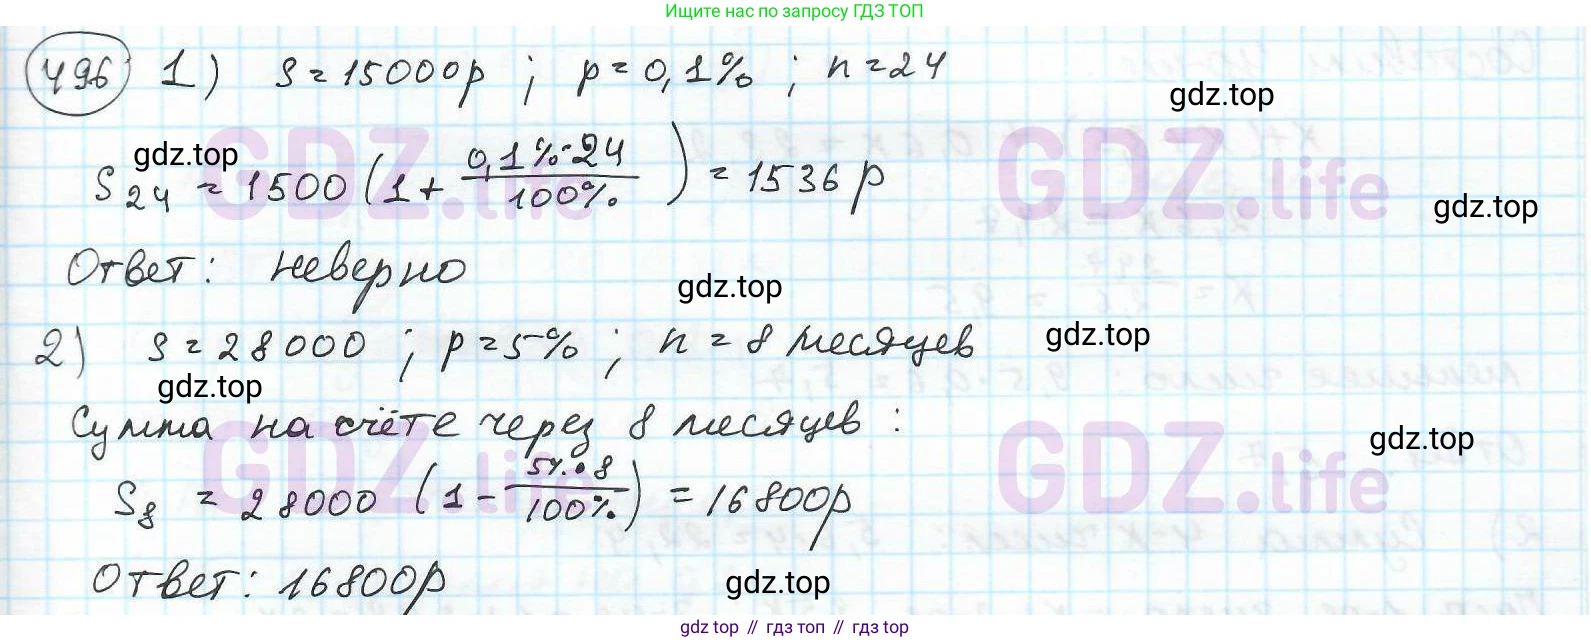 Ищите нас по запросу ГДЗ ТОП
496 1) S = 15000р ; p = 0,1% ; n = 24
gdz.top
gdz.top
S24 = 1500 (1 + 0,1%·24 / 100%) = 1536 р
GDZ.life GDZ.life
gdz.top
Ответ: неверно
gdz.top
2) S = 28000 ; p = 5% ; n = 8 месяцев
gdz.top
gdz.top
Сумма на счёте через 8 месяцев :
gdz.top
GDZ.life GDZ.life
S8 = 28000 (1 - 5%·8 / 100%) = 16800р
Ответ: 16800р
gdz.top
gdz top // гдз топ // gdz top